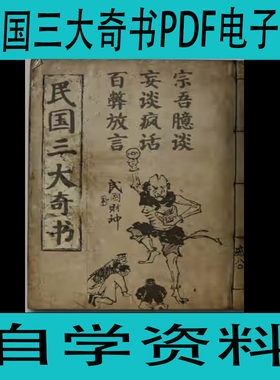 国三大奇书PDF电子
宗吾臆谈
妄谈疯话
百弊放言
民国三大奇书
民国财神
自学资料